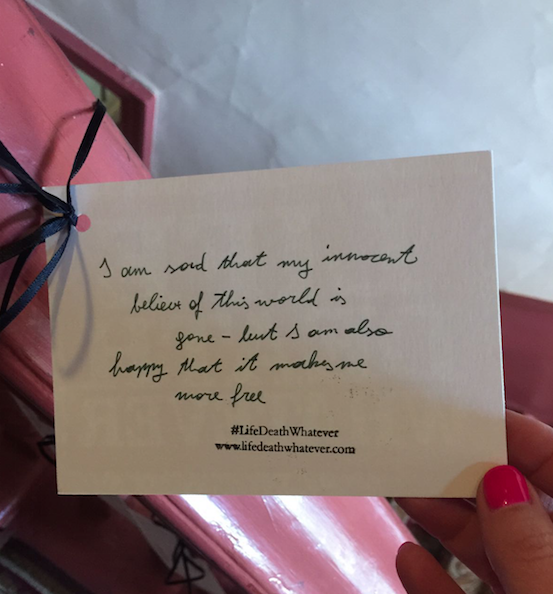 I am sad that my innocent
believe of this world is
gone – but I am also
happy that it makes me
more free
#LifeDeathWhatever
www.lifedeathwhatever.com